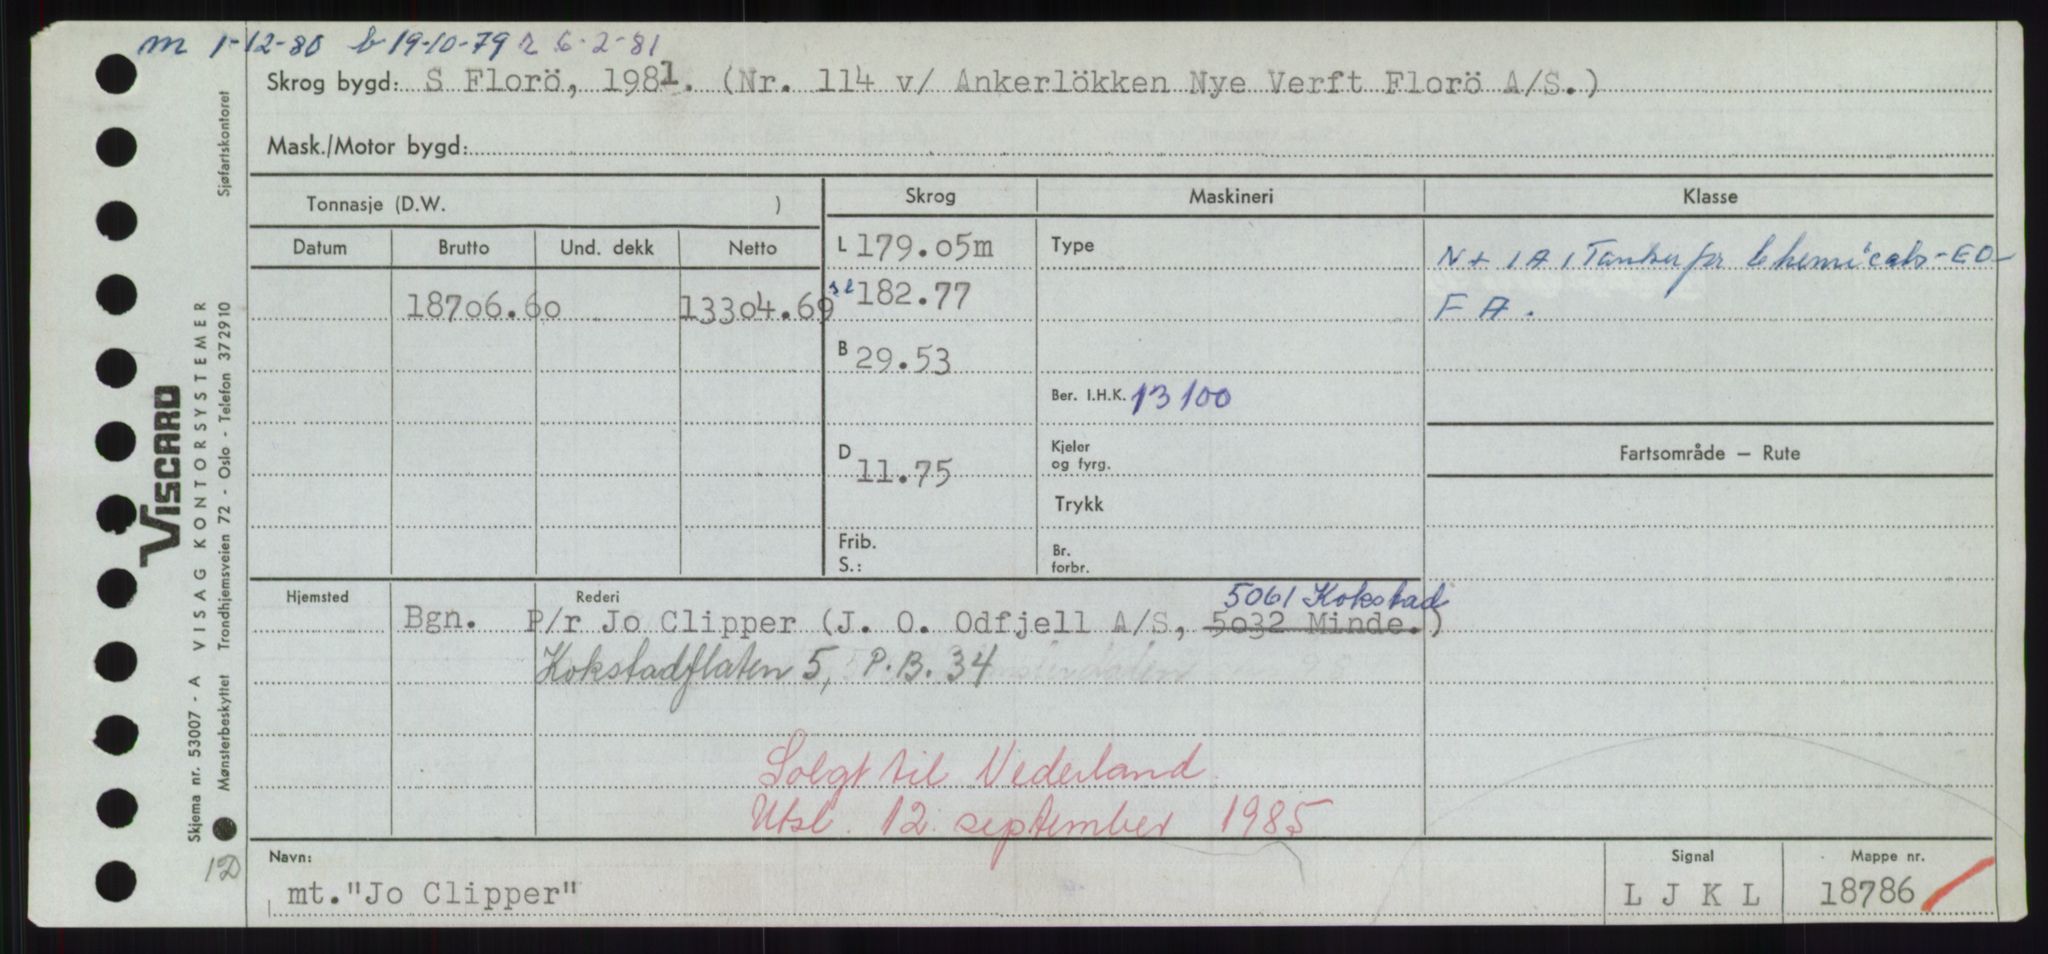 m 1-12-80 b 19-10-79 r 6-2-81
Skrog bygd: S Florö, 1981. (Nr. 114 v/ Ankerlökken Nye Verft Florö A/S.)
Mask./Motor bygd:
Tonnasje (D.W. )
Skrog
Maskineri
Klasse
Datum Brutto Und. dekk Netto
18706.60 13304.69
L 179.05m
182.77
B 29.53
D 11.75
Frib.
S.:
Type
Ber. I.H.K. 13100
Kjeler
og fyrg.
Trykk
Br.
forbr.
N + 1A1 Tanker for Chemicals-EO-
F A.
Fartsområde — Rute
Hjemsted
Rederi
5061 Kokstad
Bgn. P/r Jo Clipper (J. O. Odfjell A/S, 5032 Minde.)
Kokstadflaten 5, P.B. 34
Solgt til Nederland.
Utsl. 12. september 1985
Navn:
mt."Jo Clipper"
Signal
L J K L
Mappe nr.
18786
Skjema nr. 53007 - A VISAG KONTORSYSTEMER
VISCARD
Mønsterbeskyttet Trondhjemsveien 72 - Oslo - Telefon 372910 Sjøfartskontoret
12D